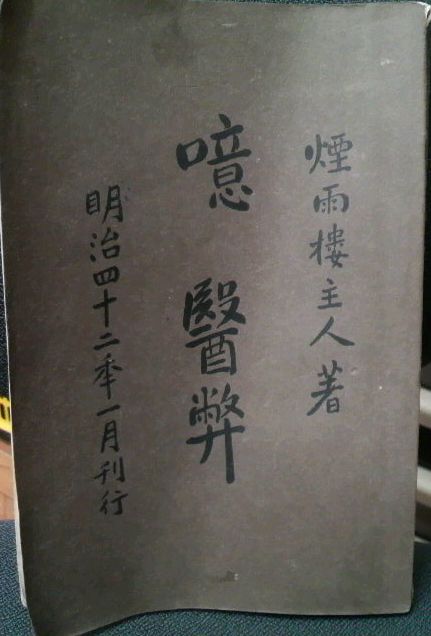 煙雨樓主人著
噫醫弊
明治四十二年一月刊行